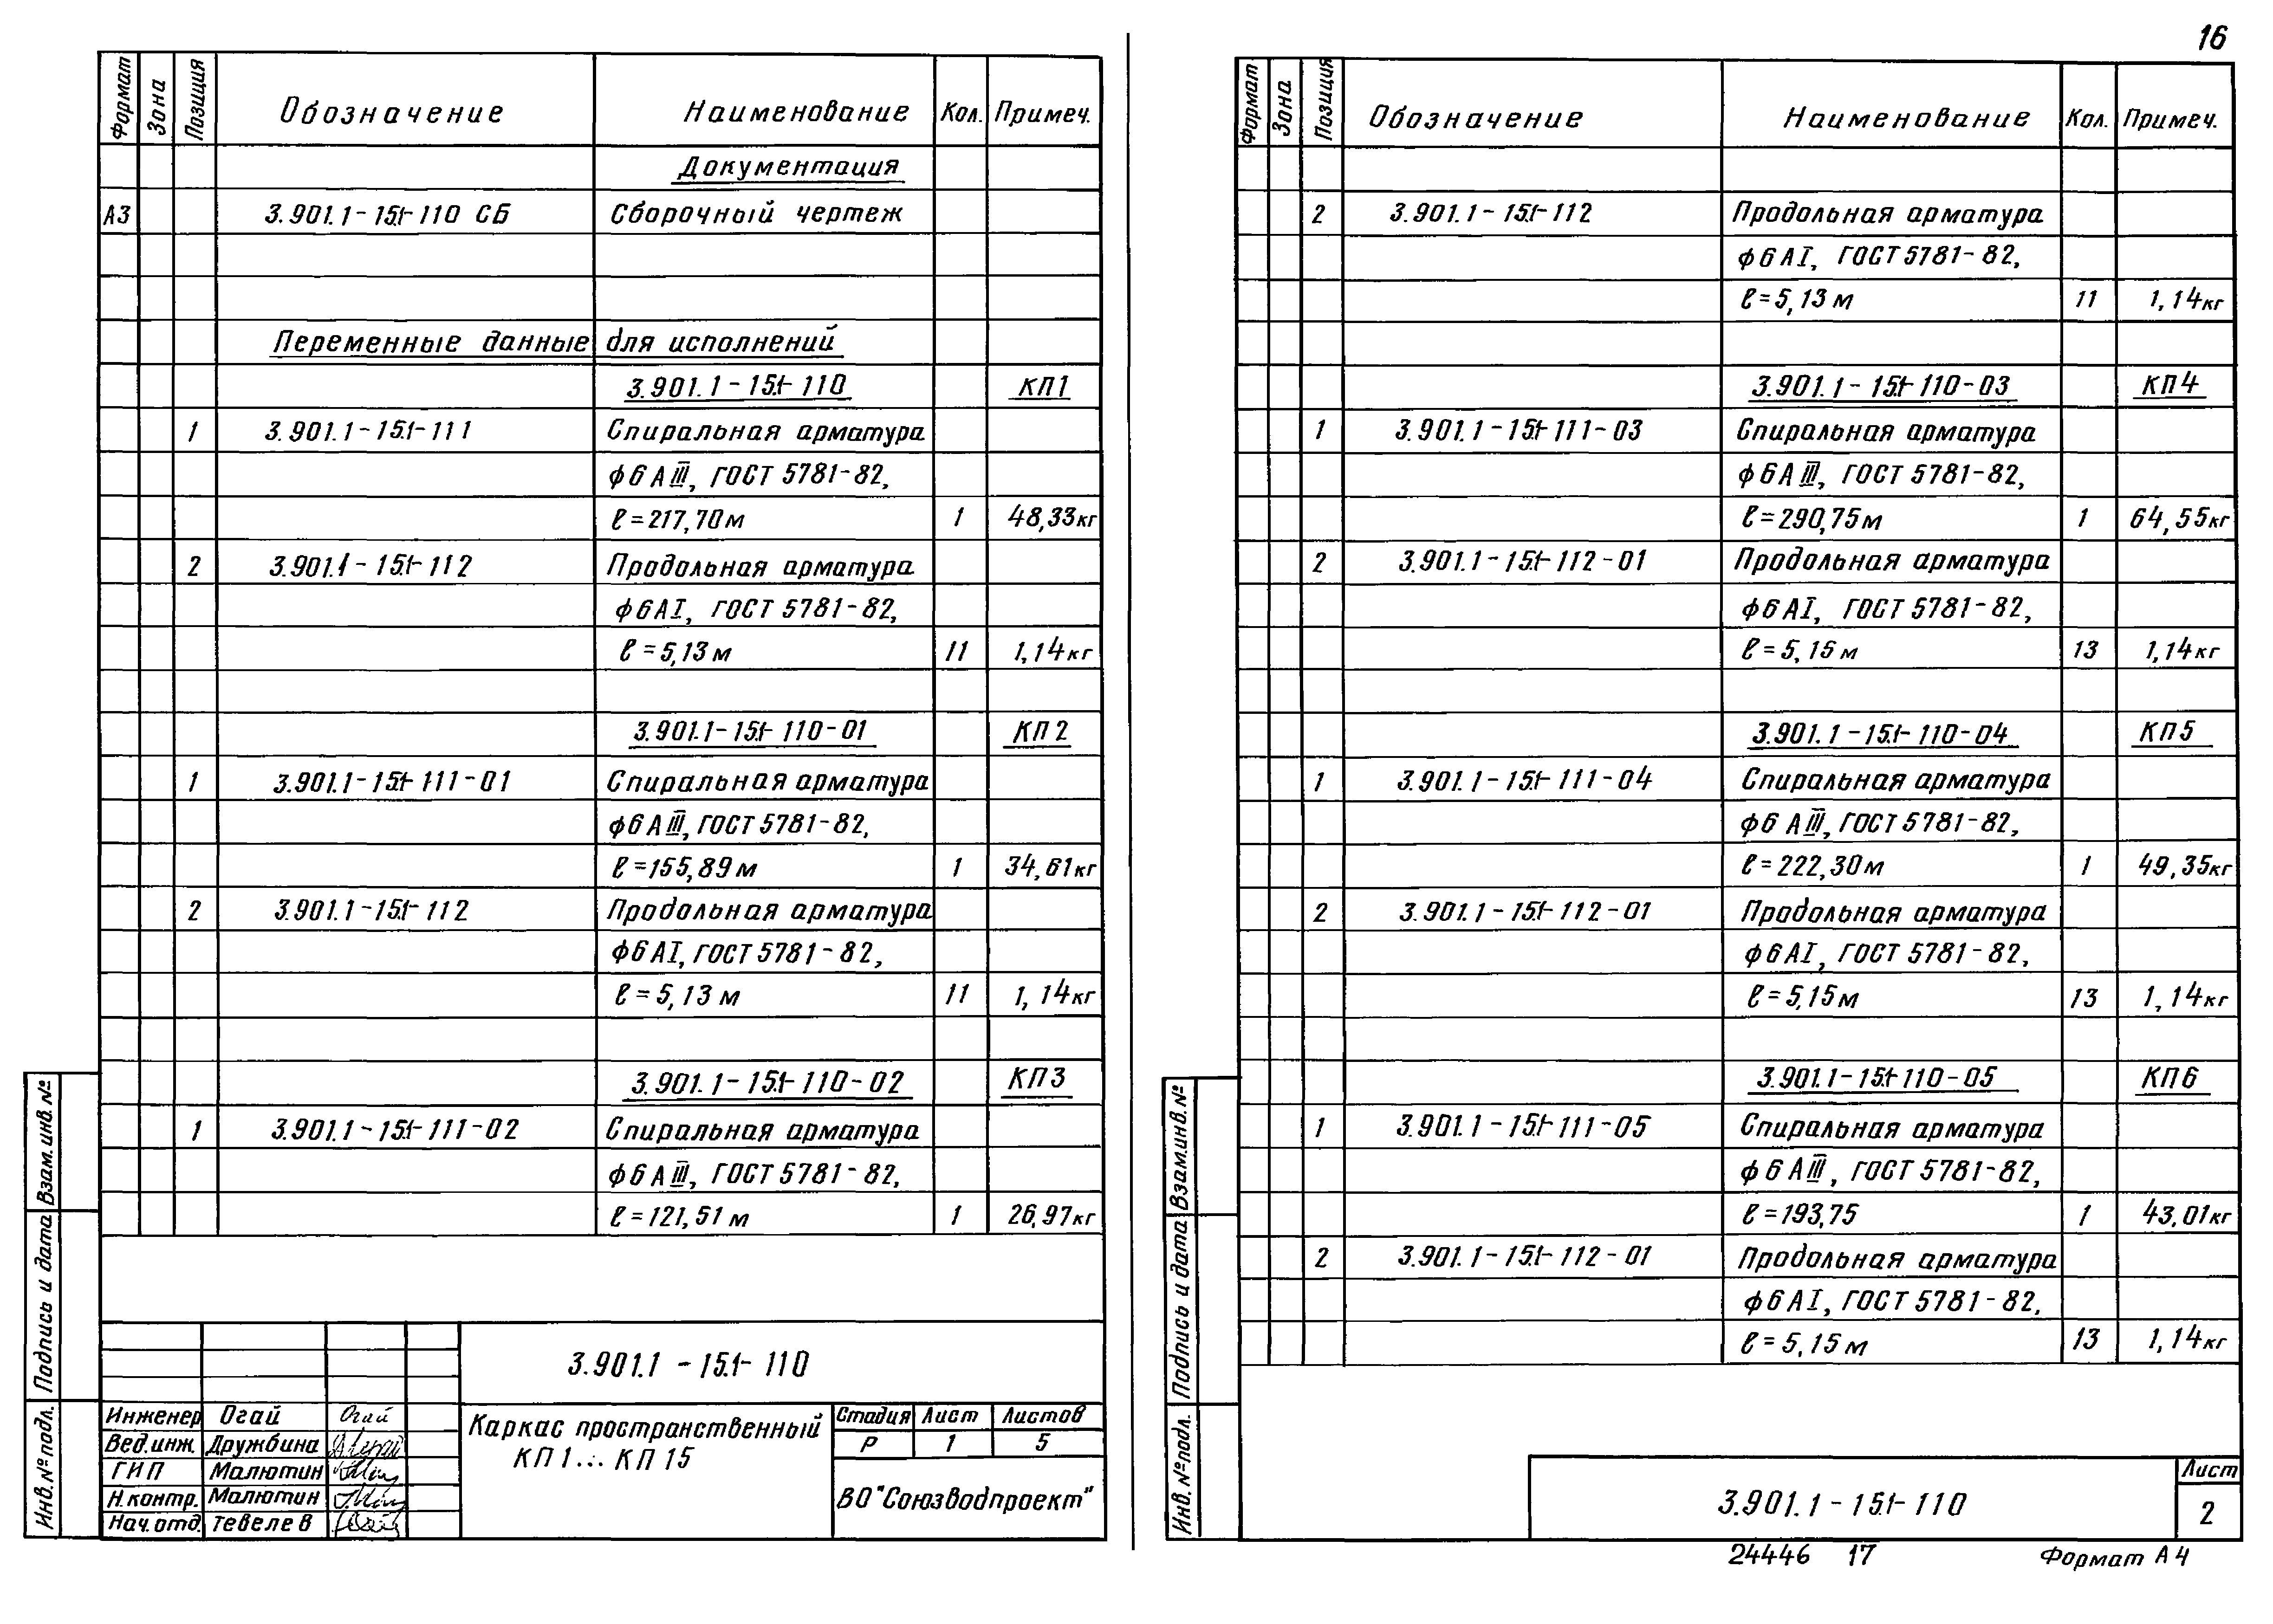 16
Формат Зона Позиция Обозначение Наименование Кол. Примеч.
Документация
А3 3.901.1-15.1-110 СБ Сборочный чертеж
Переменные данные для исполнений
3.901.1-15.1-110 КП1
1 3.901.1-15.1-111 Спиральная арматура
ф6АIII, ГОСТ 5781-82,
ℓ=217,70м 1 48,33кг
2 3.901.1-15.1-112 Продольная арматура
ф6АI, ГОСТ 5781-82,
ℓ=5,13м 11 1,14кг
3.901.1-15.1-110-01 КП2
1 3.901.1-15.1-111-01 Спиральная арматура
ф6АIII, ГОСТ 5781-82,
ℓ=155,89м 1 34,61кг
2 3.901.1-15.1-112 Продольная арматура
ф6АI, ГОСТ 5781-82,
ℓ=5,13м 11 1,14кг
3.901.1-15.1-110-02 КП3
1 3.901.1-15.1-111-02 Спиральная арматура
ф6АIII, ГОСТ 5781-82,
ℓ=121,51м 1 26,97кг
3.901.1-15.1-110
Инженер Огай Огай
Вед.инж. Дружбина
ГИП Малютин
Н.контр. Малютин
Нач.отд. Тевелев
Каркас пространственный
КП1...КП15
Стадия Лист Листов
Р 1 5
ВО "Союзводпроект"
Инв.№подл. Подпись и дата Взам.инв.№
Формат Зона Позиция Обозначение Наименование Кол. Примеч.
2 3.901.1-15.1-112 Продольная арматура
ф6АI, ГОСТ 5781-82,
ℓ=5,13м 11 1,14кг
3.901.1-15.1-110-03 КП4
1 3.901.1-15.1-111-03 Спиральная арматура
ф6АIII, ГОСТ 5781-82,
ℓ=290,75м 1 64,55кг
2 3.901.1-15.1-112-01 Продольная арматура
ф6АI, ГОСТ 5781-82,
ℓ=5,15м 13 1,14кг
3.901.1-15.1-110-04 КП5
1 3.901.1-15.1-111-04 Спиральная арматура
ф6АIII, ГОСТ 5781-82,
ℓ=222,30м 1 49,35кг
2 3.901.1-15.1-112-01 Продольная арматура
ф6АI, ГОСТ 5781-82,
ℓ=5,15м 13 1,14кг
3.901.1-15.1-110-05 КП6
1 3.901.1-15.1-111-05 Спиральная арматура
ф6АIII, ГОСТ 5781-82,
ℓ=193,75 1 43,01кг
2 3.901.1-15.1-112-01 Продольная арматура
ф6АI, ГОСТ 5781-82,
ℓ=5,15м 13 1,14кг
3.901.1-15.1-110
Лист
2
Инв.№подл. Подпись и дата Взам.инв.№
24446 17 Формат А4